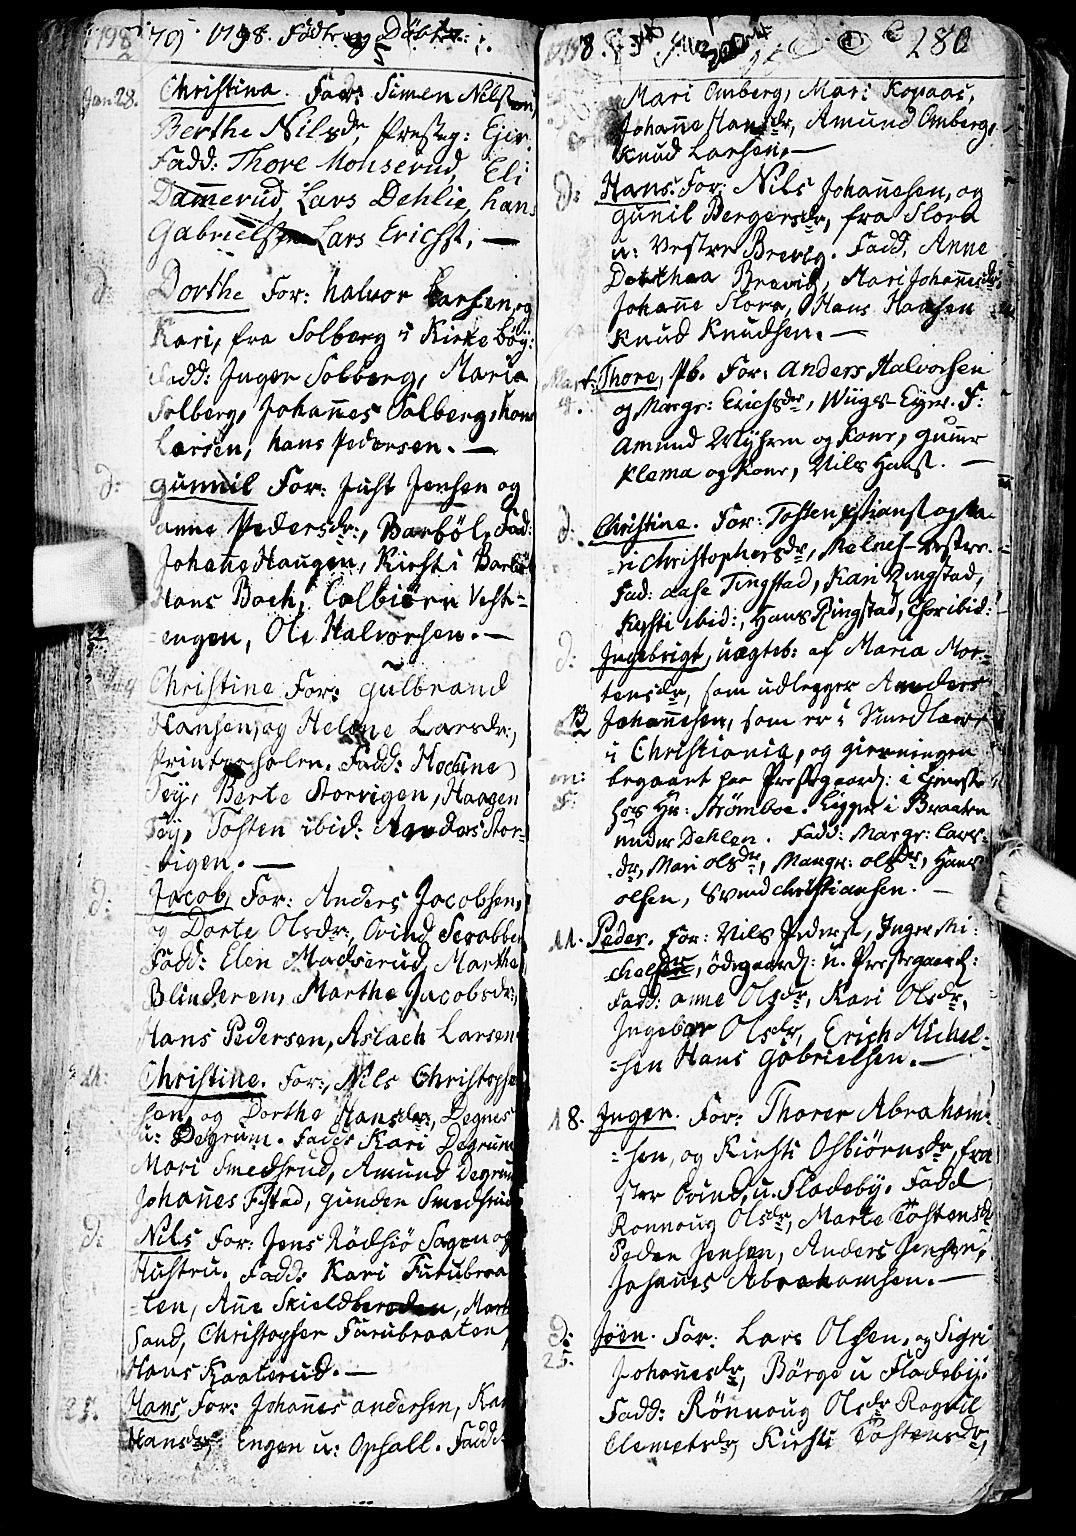 1798
1798. Fødte og Døbte
Jan 28.
Christina. For: Simen Nilsen,
Berthe Nilsdr, Presteg: Ejer.
Fadd: Thore Monserud, Eli
Dammerud, Lars Dehlie, Hans
Gabrielsen Lars Erichs. —
d:
Dorthe For: Halvor Larsen, og
Kari, fra Solberg i Kirkebøig:
Fadd: Inger Solberg, Maria
Solberg, Johannes Solberg, Hans
Larsen, Hans Pedersen. —
d:
Gunnil For: Just Jensen og
Anne Pedersdr:, Barbøl, Fad:
Johans Haugen, Kirsti Barbøl
Hans Boch, Colbiørn Vest-
-engen, Ole Halvorsen. —
Christine For: Gulbrand
Hansen, og Helene Larsdr,
Printzeholen. Fadd:
Tøj, Berte Storvigen, Haagen
Tøj, Tosten ibid: Anders Stor-
-vigen. —
d:
Jacob, For: Anders Jacobsen,
og Dorte Olsdr:, Ovind
Fadd: Elen Madserud, Marthe
Blinderen, Marthe Jacobsdr:,
Hans Pedersen, Aslach Larsen
11:
Christine. For:, Nils Christophe
sen, og Dorthe Hansdr:, Degnes
u: Degrum. Fadd: Kari Degrum
Mari Smedsrud, Amund Degrum
Johannes Fistad, Gunder Smedsrud
d:
Nils For: Jens Rødsiø Sagen og
Hustru. Fadd: Kari Furubraa
-ten, Ane Skieldbereden, Mart
Sand, Christopher Furubraaten,
Hans Kaaterud. —
25.
Hans For: Johannes Andersen, Kari
Hansdr:, Engen u: Ophall. Fadd:
1798.
280
Mari Omberg, Mari Kopaas,
Johanne Hansdr, Amund Omberg,
Knud Larsen. —
d:
Hans For: Nils Johannesen, og
Gunil Bergersdr, fra Flora
u: Vestre Brevig. Fadd, Anne
Dorthea Brevik, Mari Johannesdr,
Johanne Flora, Hans Hansen
Knud Knudsen. —
Mart:
Thore, Pb. For: Anders Halvorsen
og Margr: Erichsdr, Wiigs-Eyer. F:
Amund og Kone, Gunner
Klema og Kone, Nils Hans. —
d:
Christine. For: Tosten og
-ri Christophersdr, Melnes-vestre.
Fad: Aase Tingstad, Kari Ringstad,
Kirsti ibid:, Hans Ringstad, Thor ibid:
d:
Ingebrigt, uægteb: af Maria Mor-
tensdr, som udlegger Anders
Johannesen, som er i Smedlære
i Christiania, og gierningen
begaaet paa Prestegaard: i tieneste
hos Hr: Strømboe. Ligger i Braaten
under Dehlen. Fadd: Margr: Lars-
dr, Mari Olsdr, Margr: Olsdr, Hans
Olsen, Svend Christiansen. —
11.
Peder. For: Nils Peders., Inger Mi-
chelsdr, Ødegaard: u. Prestegaard:
Fadd: Anne Olsdr, Kari Olsdr,
Ingebor Olsdr, Erich Michel-
-sen Hans Gabrielsen. —
18.
Inger. For: Thorer Abraham-
-sen, og Kirsti Osbiørnsdr, fra
Ovind, u. Fladeby. Fadd
Ronnoug Olsdr, Marte Tostensdr
Peder Jensen, Anders Jensen,
Johannes Abrahamsen. —
d:
25.
Joen. For: Lars Olsen, og Sigri
Johannesdr, Børge u Fladeby.
Fadd: Rønnoug Olsdr Ragnil
Clemetsdr, Kirsti Tostensdr,